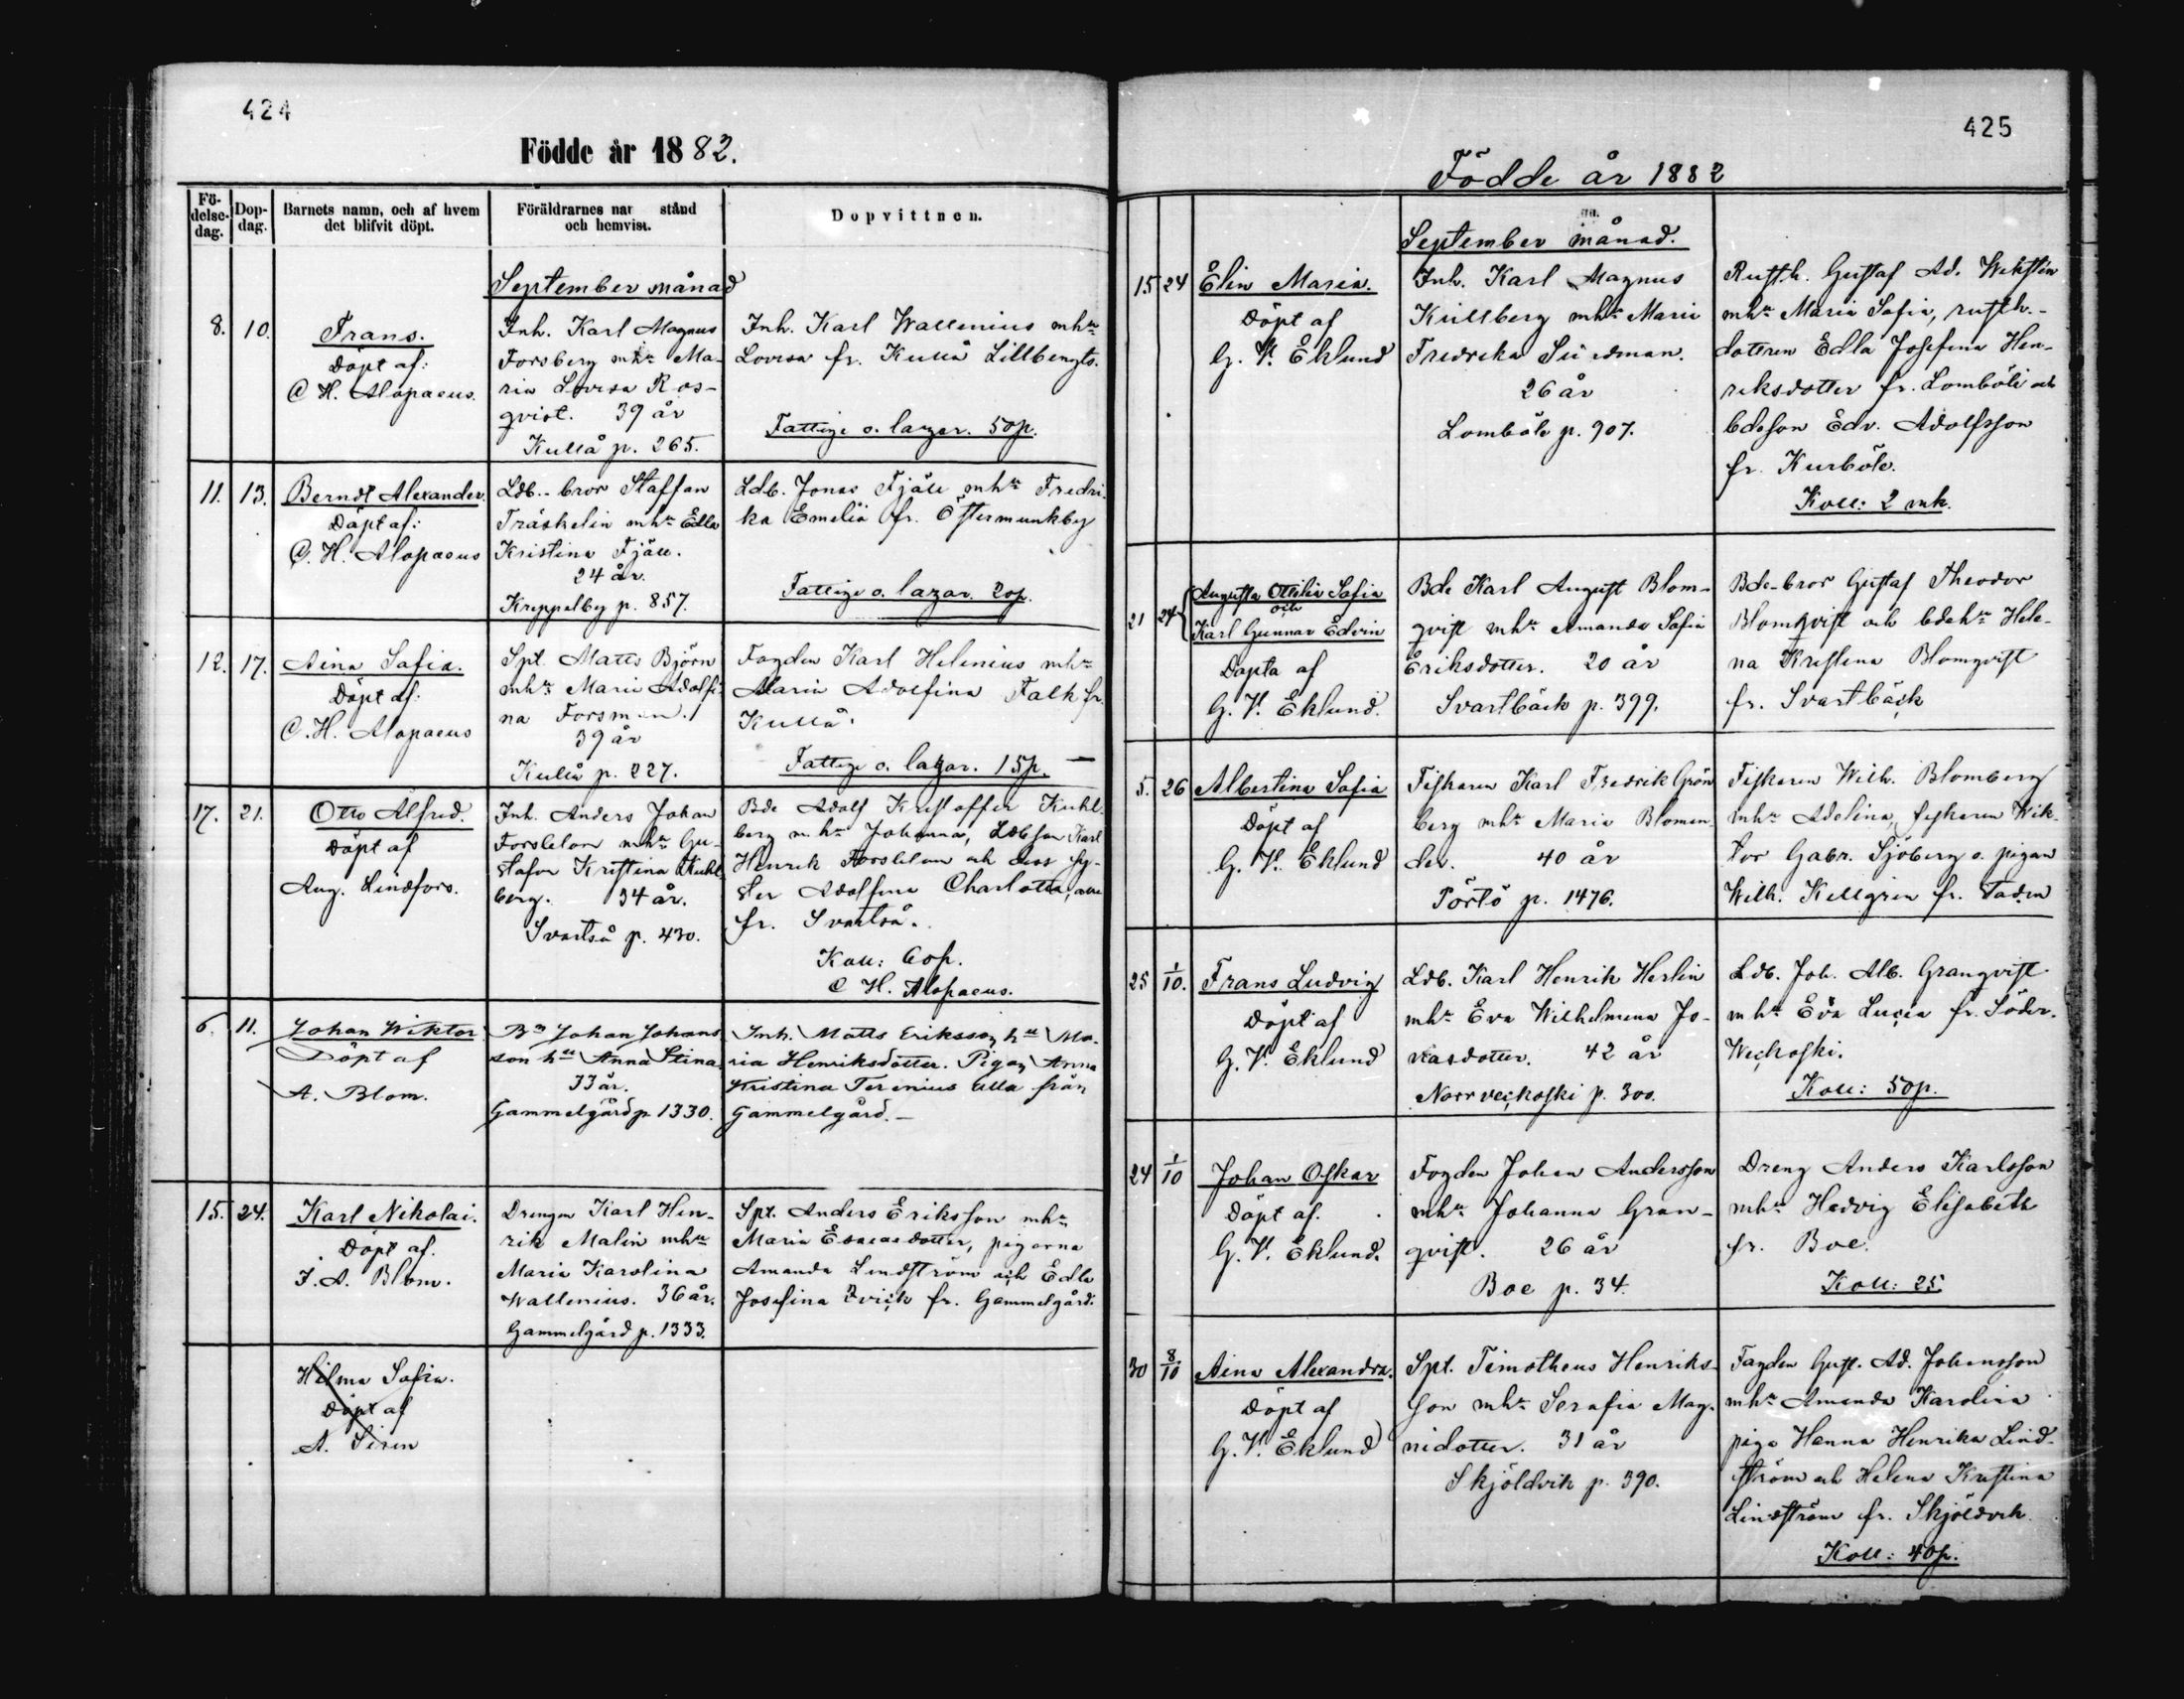 424
Födde år 1882.
Fö-
delse-
dag.
Dop-
dag.
Barnets namn, och af hvem
det blifvit döpt.
Föräldrarnes nar stånd
och hemvist.
Dopvittnen.
September månad
8. 10.
Frans.
Döpt af:
C H. Alopaeus.
Inh. Karl Magnus
Forsberg mhu Ma-
ria Lovisa Ros-
qvist. 39 år
Kullå p. 265.
Inh. Karl Wallenius mhu
Lovisa fr. Kullå Lillbengts.
Fattige o. lazar. 50p.
11. 13.
Berndt Alexander.
Döpt af:
C. H. Alopaeus
Ldb.-bror Staffan
Träskelin mhu Edla
Kristina Fjäll.
24 år.
Kreppelby p. 857.
Ldb. Jonas Fjäll mhu Fredri-
ka Emelia fr. Östermunkby
Fattige o. lazar. 20p.
12. 17.
Aina Sofia.
Döpt af:
C. H. Alopaeus
Spt. Matts Björn
mhu Maria Adolfi-
na Forsman.
39 år
Kullå p. 227.
Fogden Karl Helenius mhu
Maria Adolfina Falk fr.
Kullå.
Fattige o. lazar. 15p.
17. 21.
Otto Alfred.
Döpt af
Aug. Lindfors.
Inh. Anders Johan
Forsblom mhu Gu-
stafva Kristina Kuhl-
berg. 34 år.
Svartså p. 430.
Bde Adolf Kristoffer Kuhl-
berg m. hu Johanna, Ldbson Karl
Henrik Forsblom och dess sy-
ster Adolfina Charlotta,
fr. Svartså.
Koll: 60p.
C H. Alopaeus.
6. 11.
Johan Wiktor
Döpt af
A. Blom.
Bn Johan Johans
son hu Anna Stina
33 år.
Gammelgård p. 1330.
Inh. Matts Eriksson hu Ma-
ria Henriksdotter. Pigan Anna
Kristina Terenius alla från
Gammelgård.-
15. 24.
Karl Nikolai.
Döpt af.
F. A. Blom.
Drengen Karl Hen-
rik Malin mhu
Maria Karolina
Wallenius. 36 år.
Gammelgård p. 1333.
Spt. Anders Eriksson mhu
Maria Esaiasdotter, pigorna
Amanda Lindström och Edla
Josefina Zvick fr. Gammelgård.
Hilma Sofia.
Döpt af
A. Siren
425
Födde år 1882
September månad.
15 24
Elin Maria.
Döpt af
G. V. Eklund
Inh. Karl Magnus
Küllberg mhu Maria
Fredrika Südman.
26 år
Lomböle p. 907.
Rusth. Gustaf Ad. Wekstén
mhu Maria Sofia, rusth.-
dottren Edla Josefina Hen-
riksdotter fr. Lomböle och
bdeson Edv. Adolfsson
fr. Kurböle.
Koll: 2 mk.
21 24
Augusta Ottilia Sofia
och
Karl Gunnar Edvin
Döpta af
G. V. Eklund.
Bde Karl August Blom-
qvist mhu Amanda Sofia
Eriksdotter. 20 år
Svartbäck p. 399.
Bde-bror Gustaf Theodor
Blomqvist och bdehu Hele-
na Kristina Blomqvist
fr. Svartbäck
5. 26
Albertina Sofia
Döpt af
G. V. Eklund
Fiskaren Karl Fredrik Grön
berg mhu Maria Blomen-
der. 40 år
Pörtö p. 1476.
Fiskaren Wilh. Blomberg
mhu Adelina, fiskaren Wik-
tor Gabr. Sjöberg o. pigan
Wilh. Kellgren fr. Staden
25 1/10.
Frans Ludvig
Döpt af
G. V. Eklund
Ldb. Karl Henrik Herlin
mhu Eva Wilhelmina Jo-
nasdotter. 42 år
Norrveckoski p. 300.
Ldb. Joh. Alb. Granqvist
mhu Eva Lucia fr. Söder-
Weckoski.
Koll: 50p.
24 1/10
Johan Oskar
Döpt af.
G. V. Eklund.
Fogden Johan Andersson
mhu Johanna Gran-
qvist. 26 år
Boe p. 34.
Dreng Anders Karlsson
mhu Hedvig Elisabeth
fr. Boe.
Koll: 25
30 8/10
Aina Alexandra.
Döpt af
G. V. Eklund
Spt. Timotheus Henriks-
son mhu Serafia Mag-
nidotter. 31 år
Skjöldvik p. 390.
Fogden Gust. Ad. Johansson
mhu Amanda Karolina
piga Hanna Henrika Lind-
ström och Helena Kristina
Lindström fr. Skjöldvik
Koll: 40p.